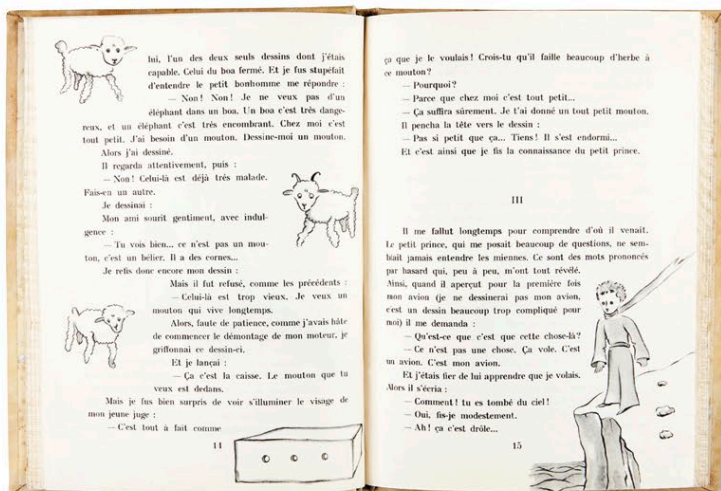 lui, l'un des deux seuls dessins dont j'étais
capable. Celui du boa fermé. Et je fus stupéfait
d'entendre le petit bonhomme me répondre :
— Non ! Non ! Je ne veux pas d'un
éléphant dans un boa. Un boa c'est très dange-
reux, et un éléphant c'est très encombrant. Chez moi c'est
tout petit. J'ai besoin d'un mouton. Dessine-moi un mouton.
Alors j'ai dessiné.
Il regarda attentivement, puis :
— Non ! Celui-là est déjà très malade.
Fais-en un autre.
Je dessinai :
Mon ami sourit gentiment, avec indul-
gence :
— Tu vois bien... ce n'est pas un mou-
ton, c'est un bélier. Il a des cornes...
Je refis donc encore mon dessin :
Mais il fut refusé, comme les précédents :
— Celui-là est trop vieux. Je veux un
mouton qui vive longtemps.
Alors, faute de patience, comme j'avais hâte
de commencer le démontage de mon moteur, je
griffonnai ce dessin-ci.
Et je lançai :
— Ça c'est la caisse. Le mouton que tu
veux est dedans.
Mais je fus bien surpris de voir s'illuminer le visage de
mon jeune juge :
— C'est tout à fait comme
14
ça que je le voulais ! Crois-tu qu'il faille beaucoup d'herbe à
ce mouton ?
— Pourquoi ?
— Parce que chez moi c'est tout petit...
— Ça suffira sûrement. Je t'ai donné un tout petit mouton.
Il pencha la tête vers le dessin :
— Pas si petit que ça... Tiens ! Il s'est endormi...
Et c'est ainsi que je fis la connaissance du petit prince.
III
Il me fallut longtemps pour comprendre d'où il venait.
Le petit prince, qui me posait beaucoup de questions, ne sem-
blait jamais entendre les miennes. Ce sont des mots prononcés
par hasard qui, peu à peu, m'ont tout révélé.
Ainsi, quand il aperçut pour la première fois
mon avion (je ne dessinerai pas mon avion,
c'est un dessin beaucoup trop compliqué pour
moi) il me demanda :
— Qu'est-ce que c'est que cette chose-là ?
— Ce n'est pas une chose. Ça vole. C'est
un avion. C'est mon avion.
Et j'étais fier de lui apprendre que je volais.
Alors il s'écria :
— Comment ! tu es tombé du ciel !
— Oui, fis-je modestement.
— Ah ! ça c'est drôle...
15